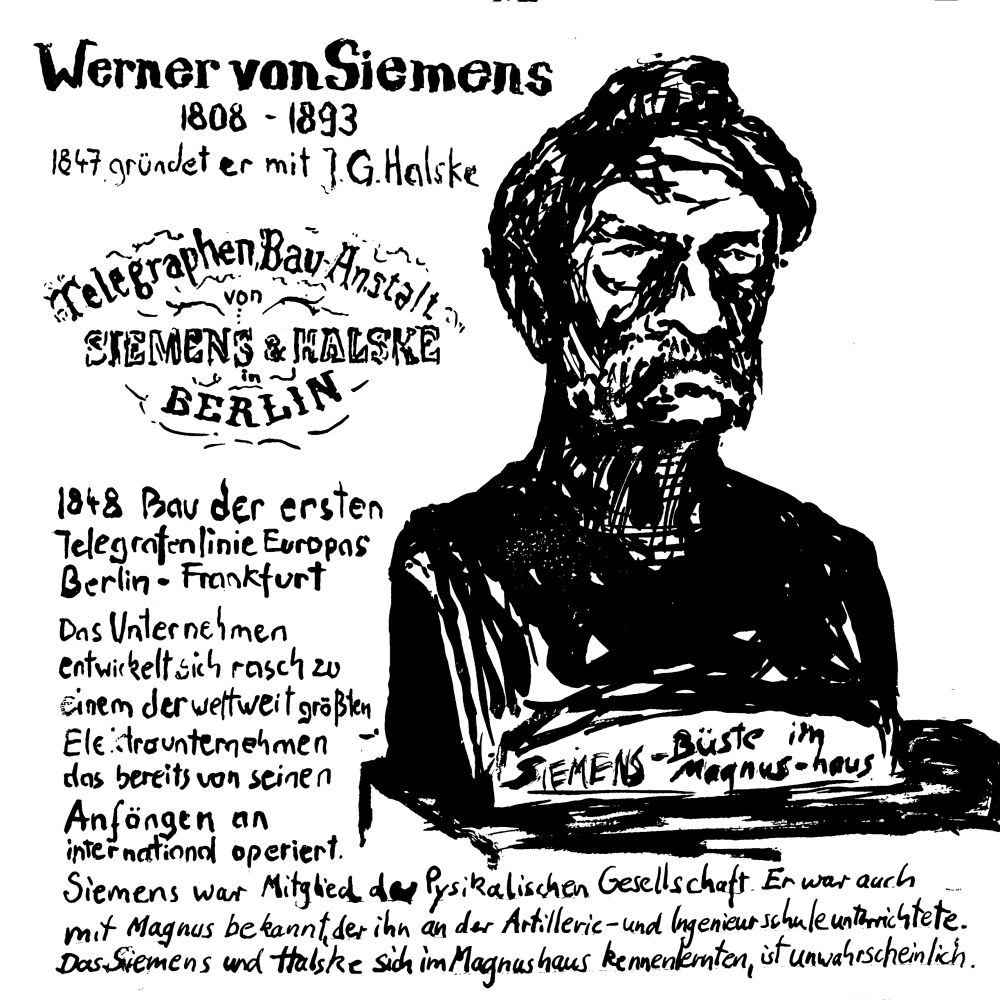 Werner von Siemens
1808 - 1893
1847 gründet er mit J.G. Halske
Telegraphen Bau-Anstalt
von
SIEMENS & HALSKE
in
BERLIN
1848 Bau der ersten
Telegrafenlinie Europas
Berlin - Frankfurt
Das Unternehmen
entwickelt sich rasch zu
einem der weltweit größten
Elektrounternehmen
das bereits von seinen
Anfängen an
international operiert.
SIEMENS - Büste im
Magnus-haus
Siemens war Mitglied der Pysikalischen Gesellschaft. Er war auch
mit Magnus bekannt, der ihn an der Artillerie- und Ingenieurschule unterrichtete.
Das Siemens und Halske sich im Magnushaus kennenlernten, ist unwahrscheinlich.